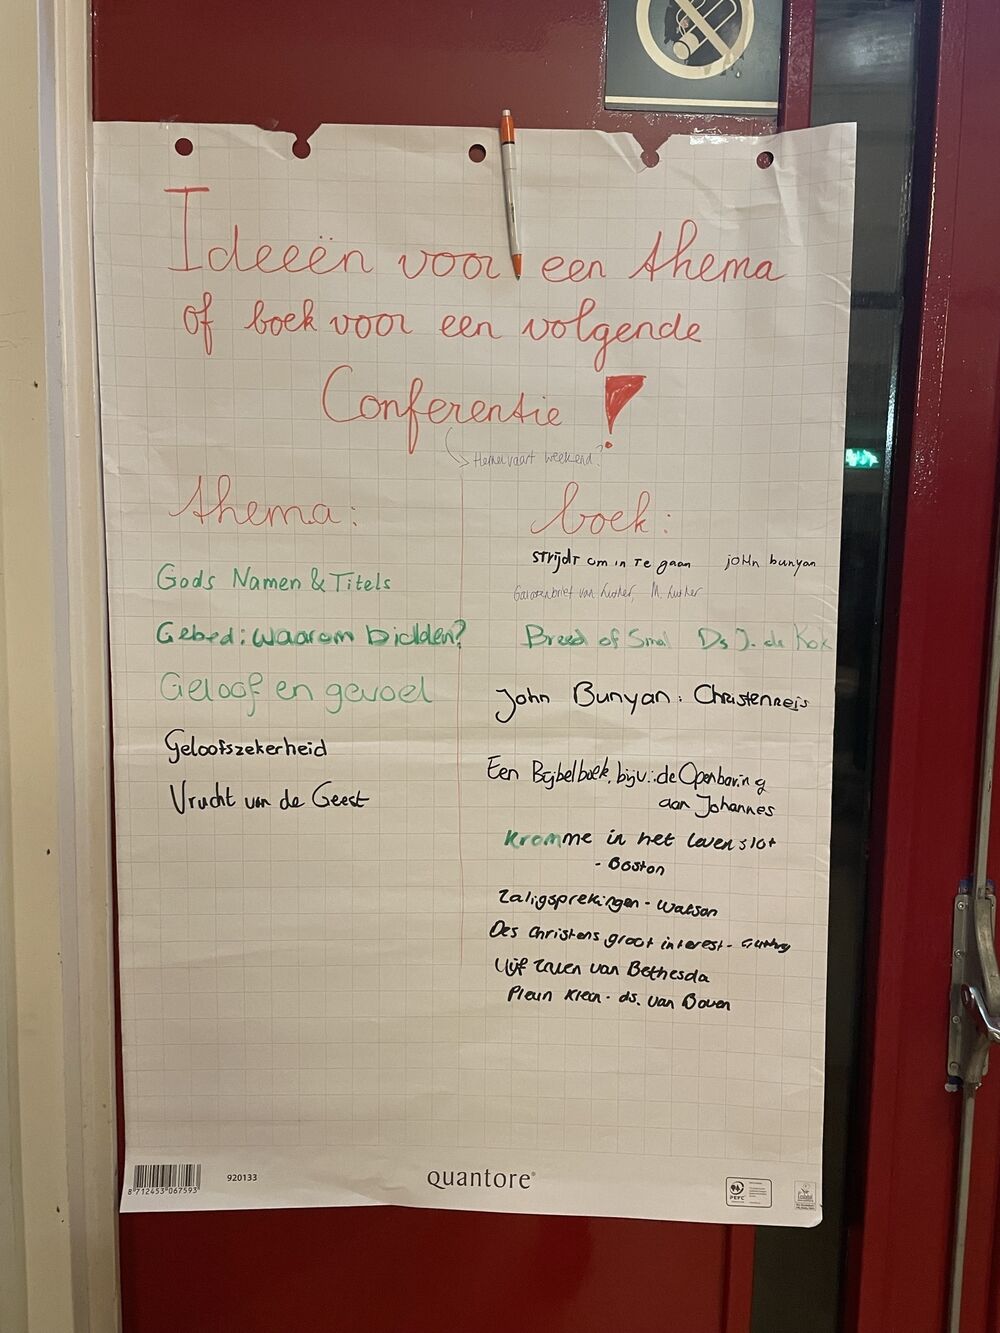 Ideeën voor een thema
of boek voor een volgende
Conferentie!
Hemelvaart weekend?
thema:
Gods Namen & Titels
Gebed: waarom bidden?
Geloof en gevoel
Geloofszekerheid
Vrucht van de Geest
boek:
strijdt om in te gaan john bunyan
van Luther, M. Luther
Breed of Smal Ds J. de Kok
John Bunyan: Christenreis
Een Bijbelboek, bijv.: de Openbaring
aan Johannes
Kromme in het levenslot
- Boston
Zaligsprekingen - Watson
Des Christens groot interest - Guthry
Vijf zalen van Bethesda
ds. van Boven
8 712453 067593
920133
quantore®
PEFC